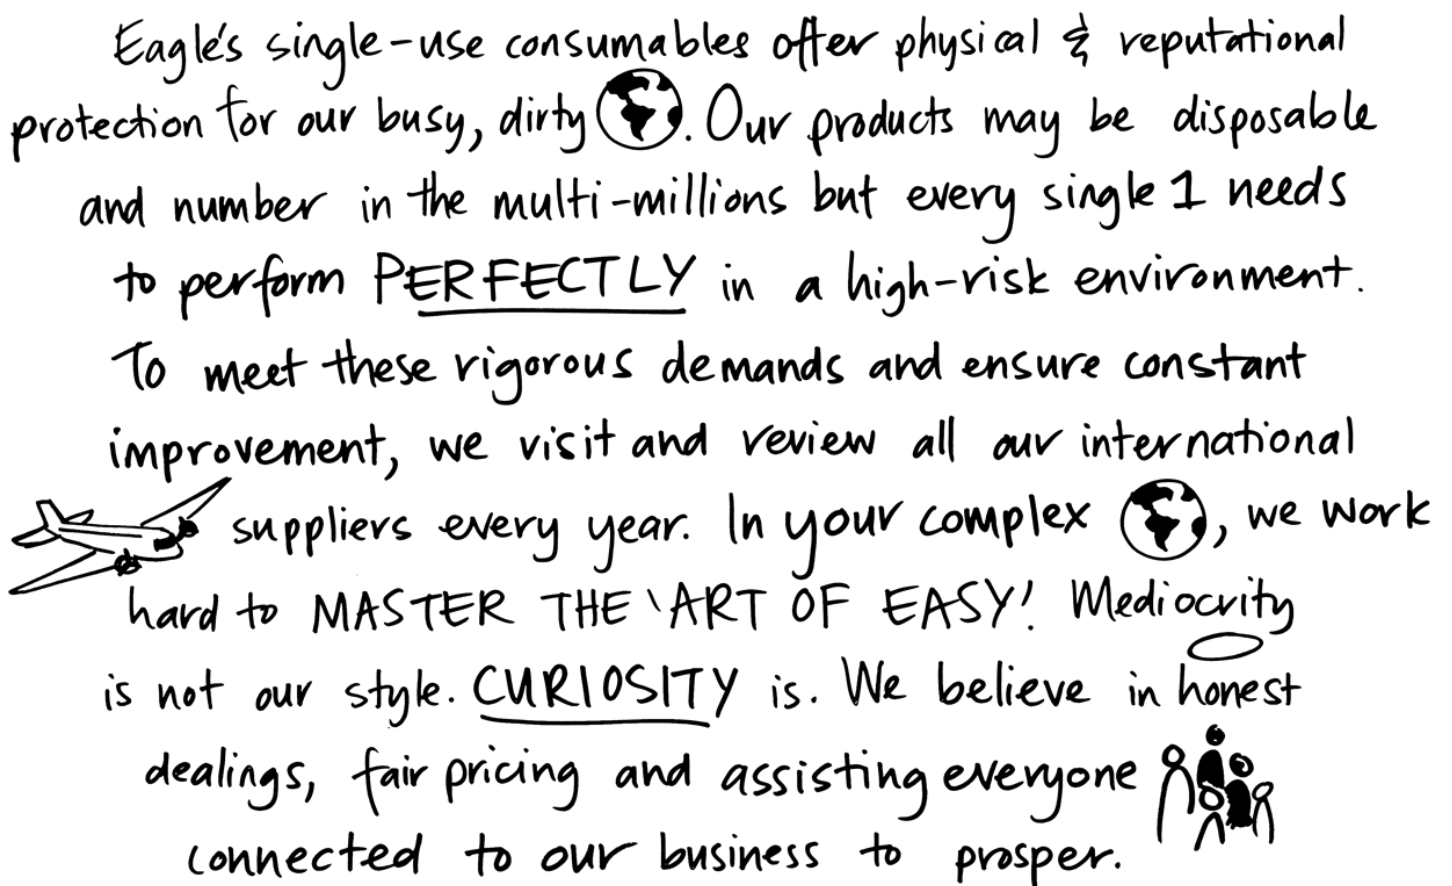 Eagle's single-use consumables offer physical & reputational
protection for our busy, dirty . Our products may be disposable
and number in the multi-millions but every single 1 needs
to perform PERFECTLY in a high-risk environment.
To meet these rigorous demands and ensure constant
improvement, we visit and review all our international
suppliers every year. In your complex , we work
hard to MASTER THE 'ART OF EASY! Mediocrity
is not our style. CURIOSITY is. We believe in honest
dealings, fair pricing and assisting everyone
connected to our business to prosper.